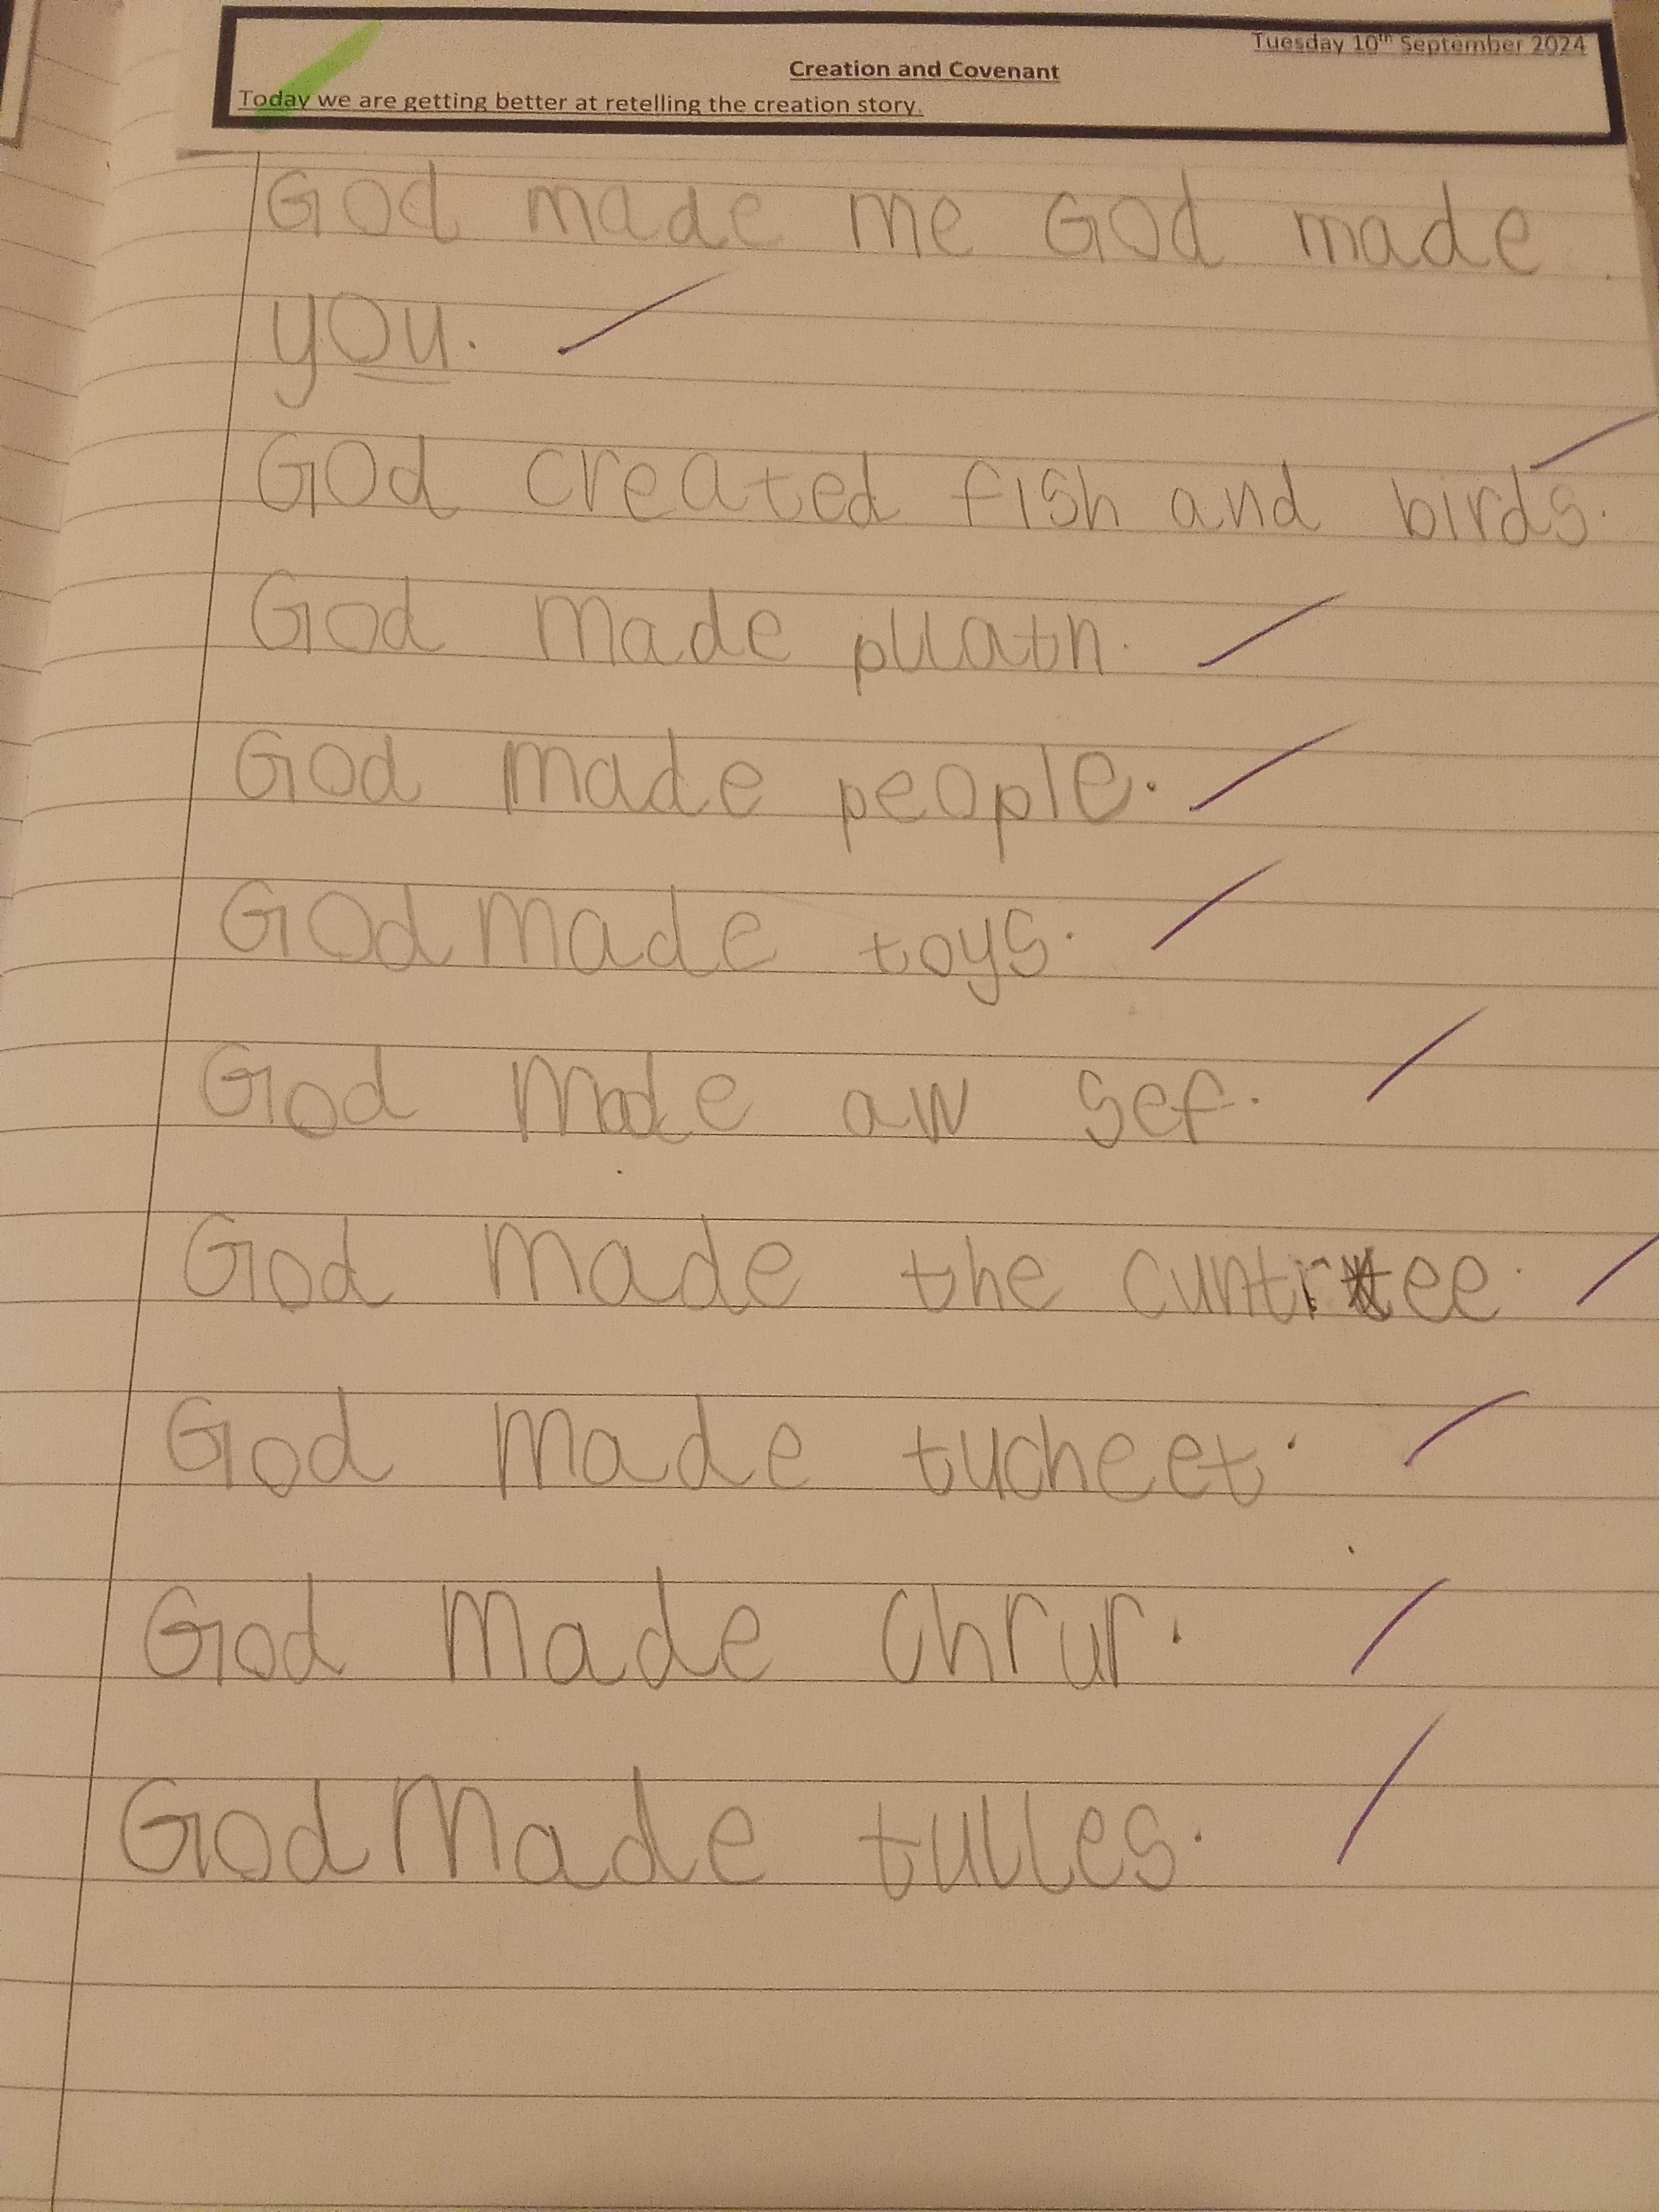 Tuesday 10th September 2024
Creation and Covenant
Today we are getting better at retelling the creation story.
God made me God made
you.
God created fish and birds.
God made pllatn.
God made people.
God made toys.
God made aw sef.
God made the cuntrtee.
God made tucheet.
God made chrur.
God made tulles.